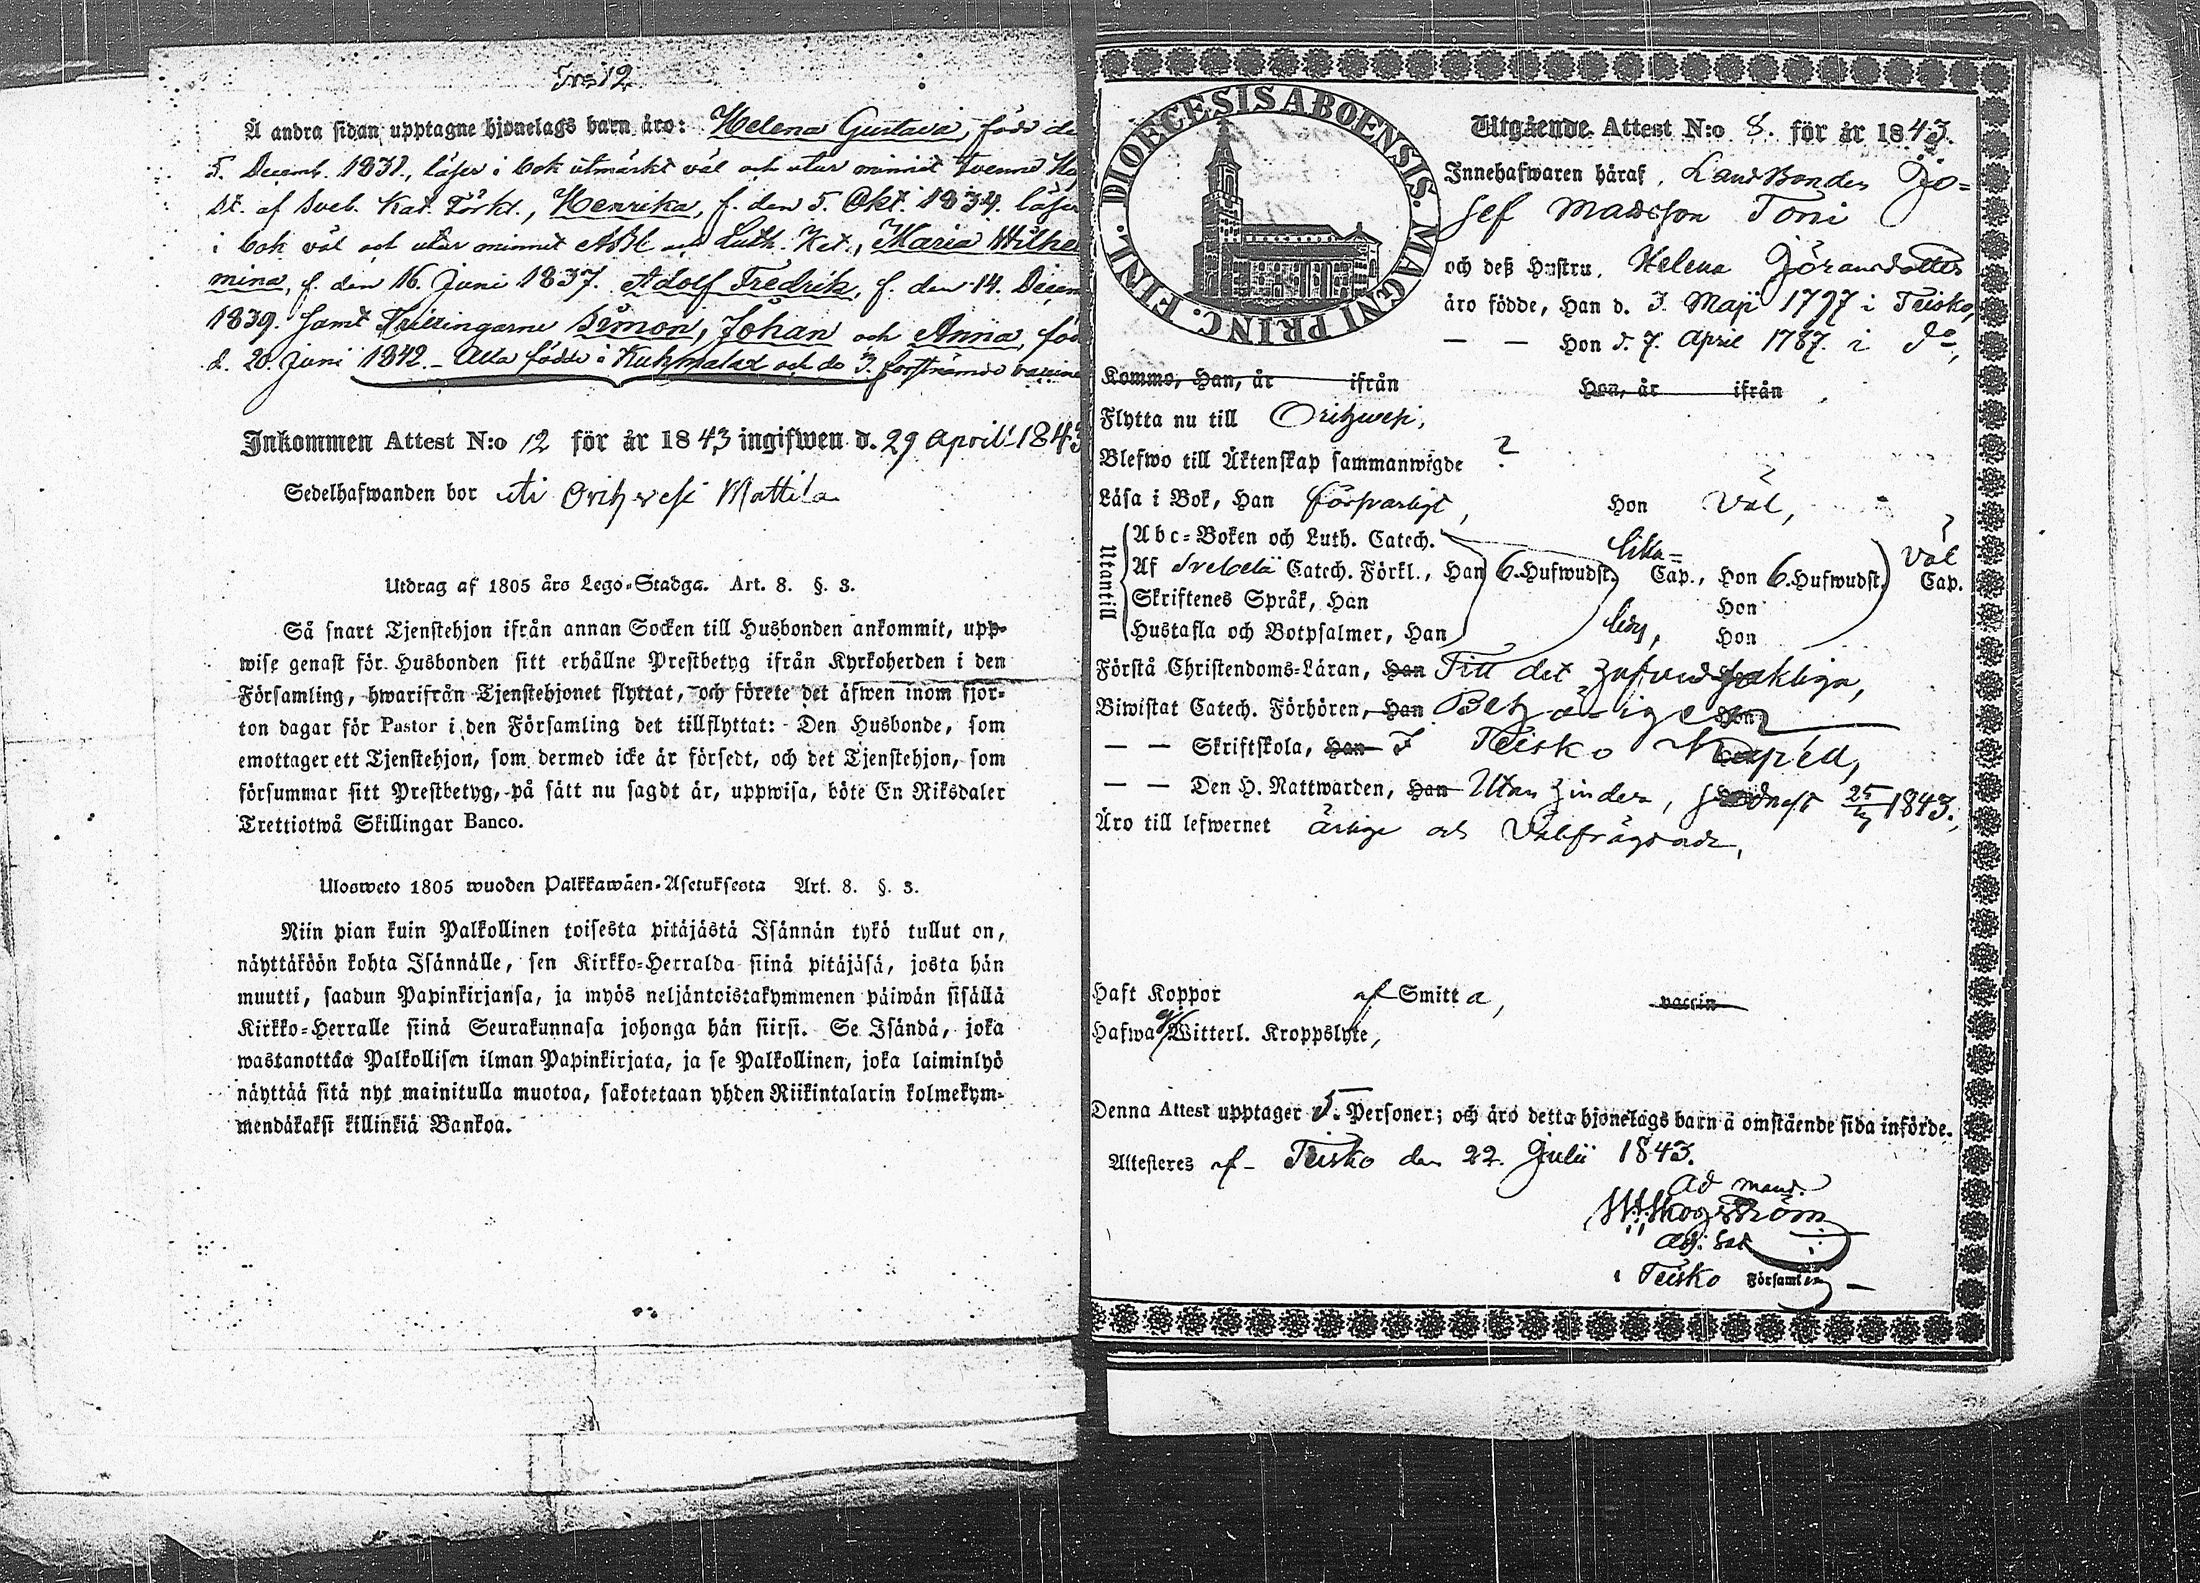 12
Å andra sidan upptagne hjonelags barn äro: Helena Gustava, född de
5. Decemb. 1831, läser i bok utmärkt väl och utur minnet tvenne
St. af Sveb. Kat. Förkl., Henrika, f. den 5. Okt. 1834. läser
i bok väl och utur minnet och Luth. Kat., Maria Wilhel
mina, f. den 16. Juni 1837. Adolf Fredrik, f. den 14. Decem
1839. samt Trillingarne Simon, Johan och Anna, föd
d. 20. Juni 1842. – Alla födde i Kuhmalax och de 3.
Inkommen Attest N:o 12 för år 1843 ingifwen d. 29 April 1843
Sedelhafwanden bor uti Orihvesi Mattila
Utdrag af 1805 års Lego-Stadga. Art. 8. §. 3.
Så snart Tjenstehjon ifrån annan Socken till Husbonden ankommit, upp-
wise genast för Husbonden sitt erhållne Prestbetyg ifrån Kyrkoherden i den
Församling, hwarifrån Tjenstehjonet flyttat, och förete det äfwen inom fjor-
ton dagar för Pastor i den Församling det tillflyttat: Den Husbonde, som
emottager ett Tjenstehjon, som dermed icke är försedt, och det Tjenstehjon, som
försummar sitt Prestbetyg, på sätt nu sagdt är, uppwisa, böte En Riksdaler
Trettiotwå Skillingar Banco.
Ulosweto 1805 wuoden Palkkawäen-Asetuksesta Art. 8. §. 3.
Niin pian kuin Palkollinen toisesta pitäjästä Isännän tykö tullut on,
näyttäköön kohta Isännälle, sen Kirkko-Herralda siinä pitäjäsä, josta hän
muutti, saadun Papinkirjansa, ja myös neljäntoistakymmenen päiwän sisällä
Kirkko-Herralle siinä Seurakunnasa johonga hän siirsi. Se Isändä, joka
wastanottaa Palkollisen ilman Papinkirjata, ja se Palkollinen, joka laiminlyö
näyttää sitä nyt mainitulla muotoa, sakotetaan yhden Riikintalarin kolmekym-
mendäkaksi killinkiä Bankoa.
DIOECESIS ABOENSIS. MAGNI PRINC. FINL.
Utgående Attest N:o 8. för år 1843.
Innehafwaren häraf, Landbonden Jo-
sef Madsson Toni
och deß Hustru, Helena Göransdotter
äro födde, Han d. 3. Maji 1797 i Teisko,
— — Hon d. 7. April 1787. i do,
Kommo, Han, år ifrån Hon, år ifrån
Flytta nu till Orihwesi,
Blefwo till Äktenskap sammanwigde ?
Läsa i Bok, Han försvarligt, Hon Väl,
Utantill
Abc-Boken och Luth. Catech.
Af Svebelii Catech. Förkl., Han 6. Hufwudst. Cap., Hon 6. Hufwudst. Väl Cap.
Skriftenes Språk, Han Hon
Hustafla och Botpsalmer, Han Hon
Förstå Christendoms-Läran, Han Till det hufvudsakliga,
Biwistat Catech. Förhören, Han Hon
— — Skriftskola, Han I Teisko Kapell,
— — Den H. Nattwarden, Han Utan hinder, sednast 1843.,
Äro till lefwernet ärlige och Välfrägdade,
Haft Koppor af Smitta, vaccin
Hafwa ej Witterl. Kroppslyte,
Denna Attest upptager 5. Personer; och äro detta hjonelags barn å omstående sida införde.
Attesteres af – Teisko den 22. Julii 1843.
Ad mand.
Skogström
Adj. Sac
i Teisko Församling